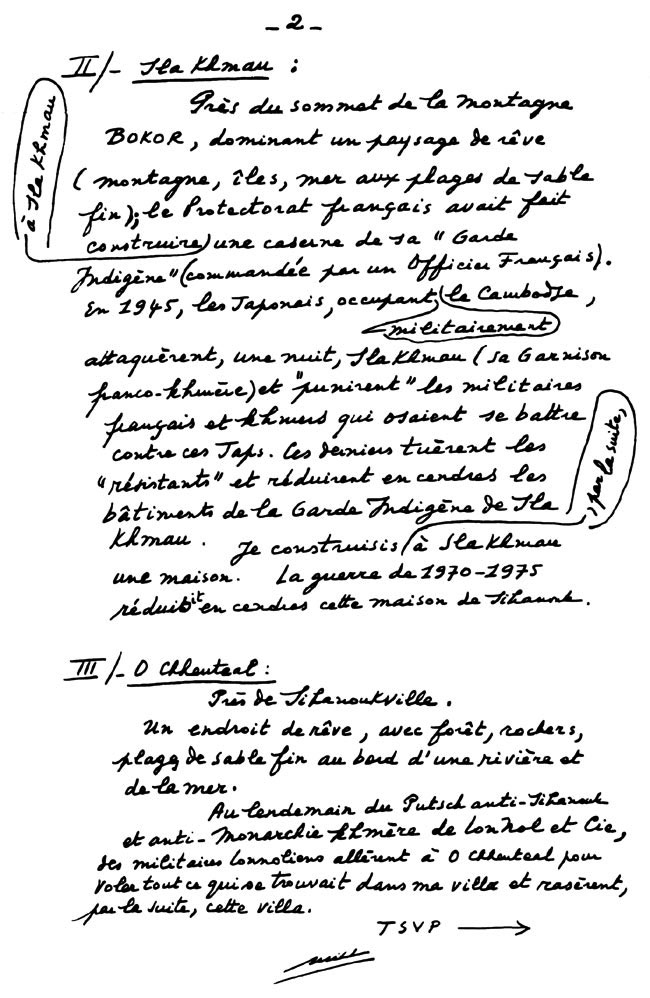 - 2 -
II/- Sla Khmau :
Près du sommet de la montagne
à Sla Khmau
BOKOR, dominant un paysage de rêve
(montagne, îles, mer aux plages de sable
fin); le Protectorat français avait fait
construire) une caserne de sa "Garde
Indigène" (commandée par un Officier Français).
En 1945, les Japonais, occupant le Cambodge,
militairement
attaquèrent, une nuit, Sla Khmau (sa Garnison
franco-khmère) et "punirent" les militaires
français et khmers qui osaient se battre
contre ces Japs. Ces derniers tuèrent les
"résistants" et réduisirent en cendres les
bâtiments de la Garde Indigène de Sla
Khmau. Je construisis à Sla Khmau
, par la suite,
une maison. La guerre de 1970-1975
réduisit en cendres cette maison de Sihanouk.
III/- O Chheuteal :
Près de Sihanoukville.
Un endroit de rêve, avec forêt, rochers,
plages de sable fin au bord d'une rivière et
de la mer.
Au lendemain du Putsch anti-Sihanouk
et anti-Monarchie khmère de Lon Nol et Cie,
des militaires lonnoliens allèrent à O Chheuteal pour
voler tout ce qui se trouvait dans ma villa et rasèrent,
par la suite, cette villa.
TSVP →